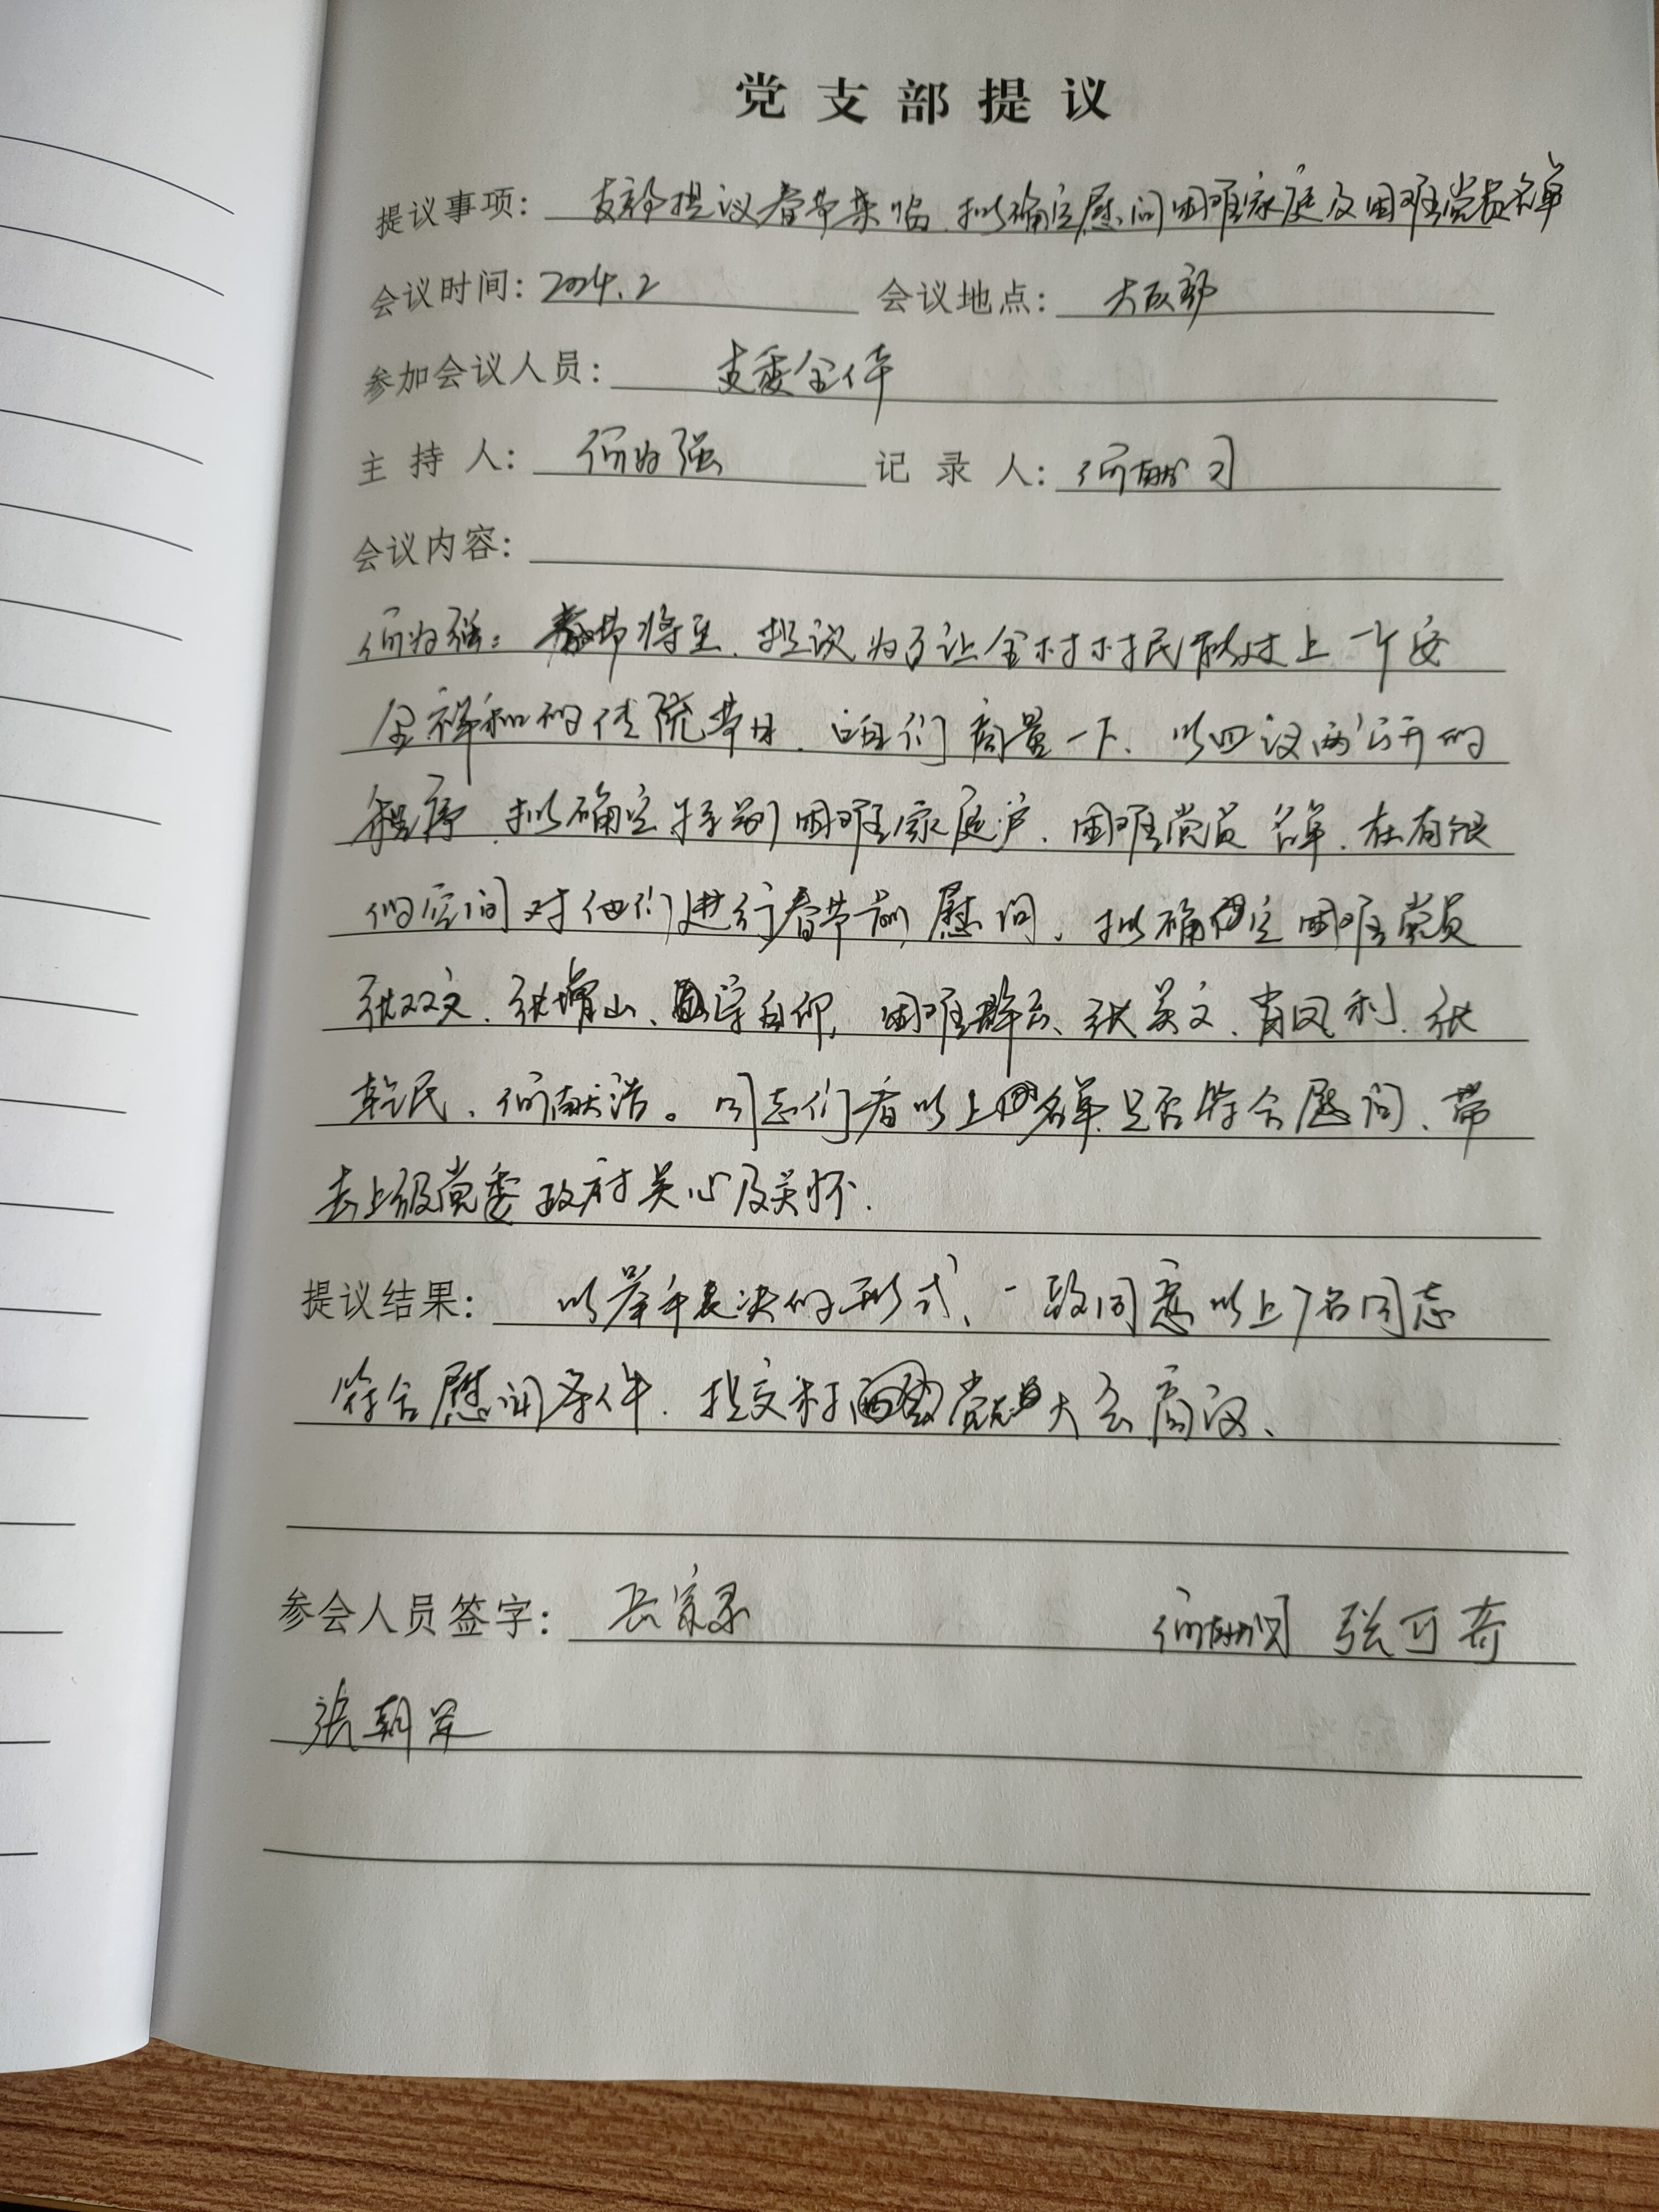 党支部提议
提议事项： 支部提议春节来临、拟确定慰问困难家庭及困难党员名单
会议时间：2024.2 会议地点： 大队部
参加会议人员： 支委全体
主持人： 何为强 记录人： 何献
会议内容：
何为强：春节将至、提议为了让全村村民都过上一个安
全祥和的传统节日、咱们商量一下、以四议两公开的
程序、拟确定特别困难家庭户、困难党员名单、在有限
的空间对他们进行春节前慰问、拟确定困难党员
张双文、张增山、困难群众、张英文、肖凤利、张
乾民、何献浩。同志们看以上名单是否符合慰问、带
去上级党委政府关心及关怀.
提议结果： 以举手表决的形式、一致同意以上7名同志
符合慰问条件、提交村两委党员大会商议、
参会人员签字： 何献 张可奇
張朝军